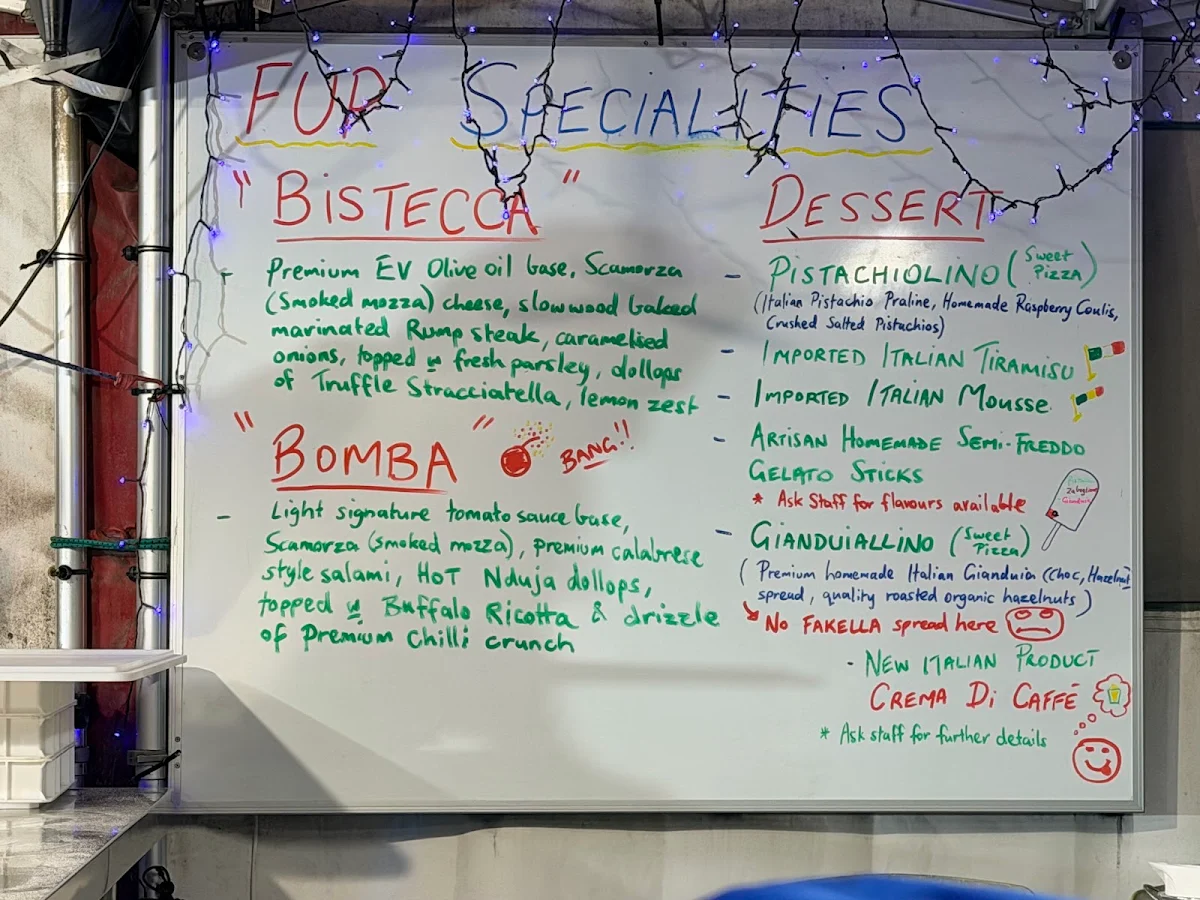 FUP SPECIALITIES
"BISTECCA"
- Premium EV Olive oil base, Scamorza
(Smoked mozza) cheese, slow wood baked
marinated Rump steak, caramelised
onions, topped w fresh parsley, dollops
of Truffle Stracciatella, lemon zest
"BOMBA" BANG!!
- Light signature tomato sauce base,
Scamorza (smoked mozza), premium calabrese
style salami, HOT Nduja dollops,
topped w Buffalo Ricotta & drizzle
of Premium Chilli crunch
DESSERT
- PISTACHIOLINO (Sweet
Pizza)
(Italian Pistachio Praline, Homemade Raspberry Coulis,
Crushed Salted Pistachios)
- IMPORTED ITALIAN TIRAMISU
- IMPORTED ITALIAN MOUSSE
- ARTISAN HOMEMADE SEMI-FREDDO
GELATO STICKS
* Ask Staff for flavours available
- GIANDUIALLINO (Sweet
Pizza)
(Premium homemade Italian Gianduia (choc, Hazelnut
spread, quality roasted organic hazelnuts)
No FAKELLA spread here
- NEW ITALIAN PRODUCT
CREMA Di CAFFÉ
* Ask staff for further details